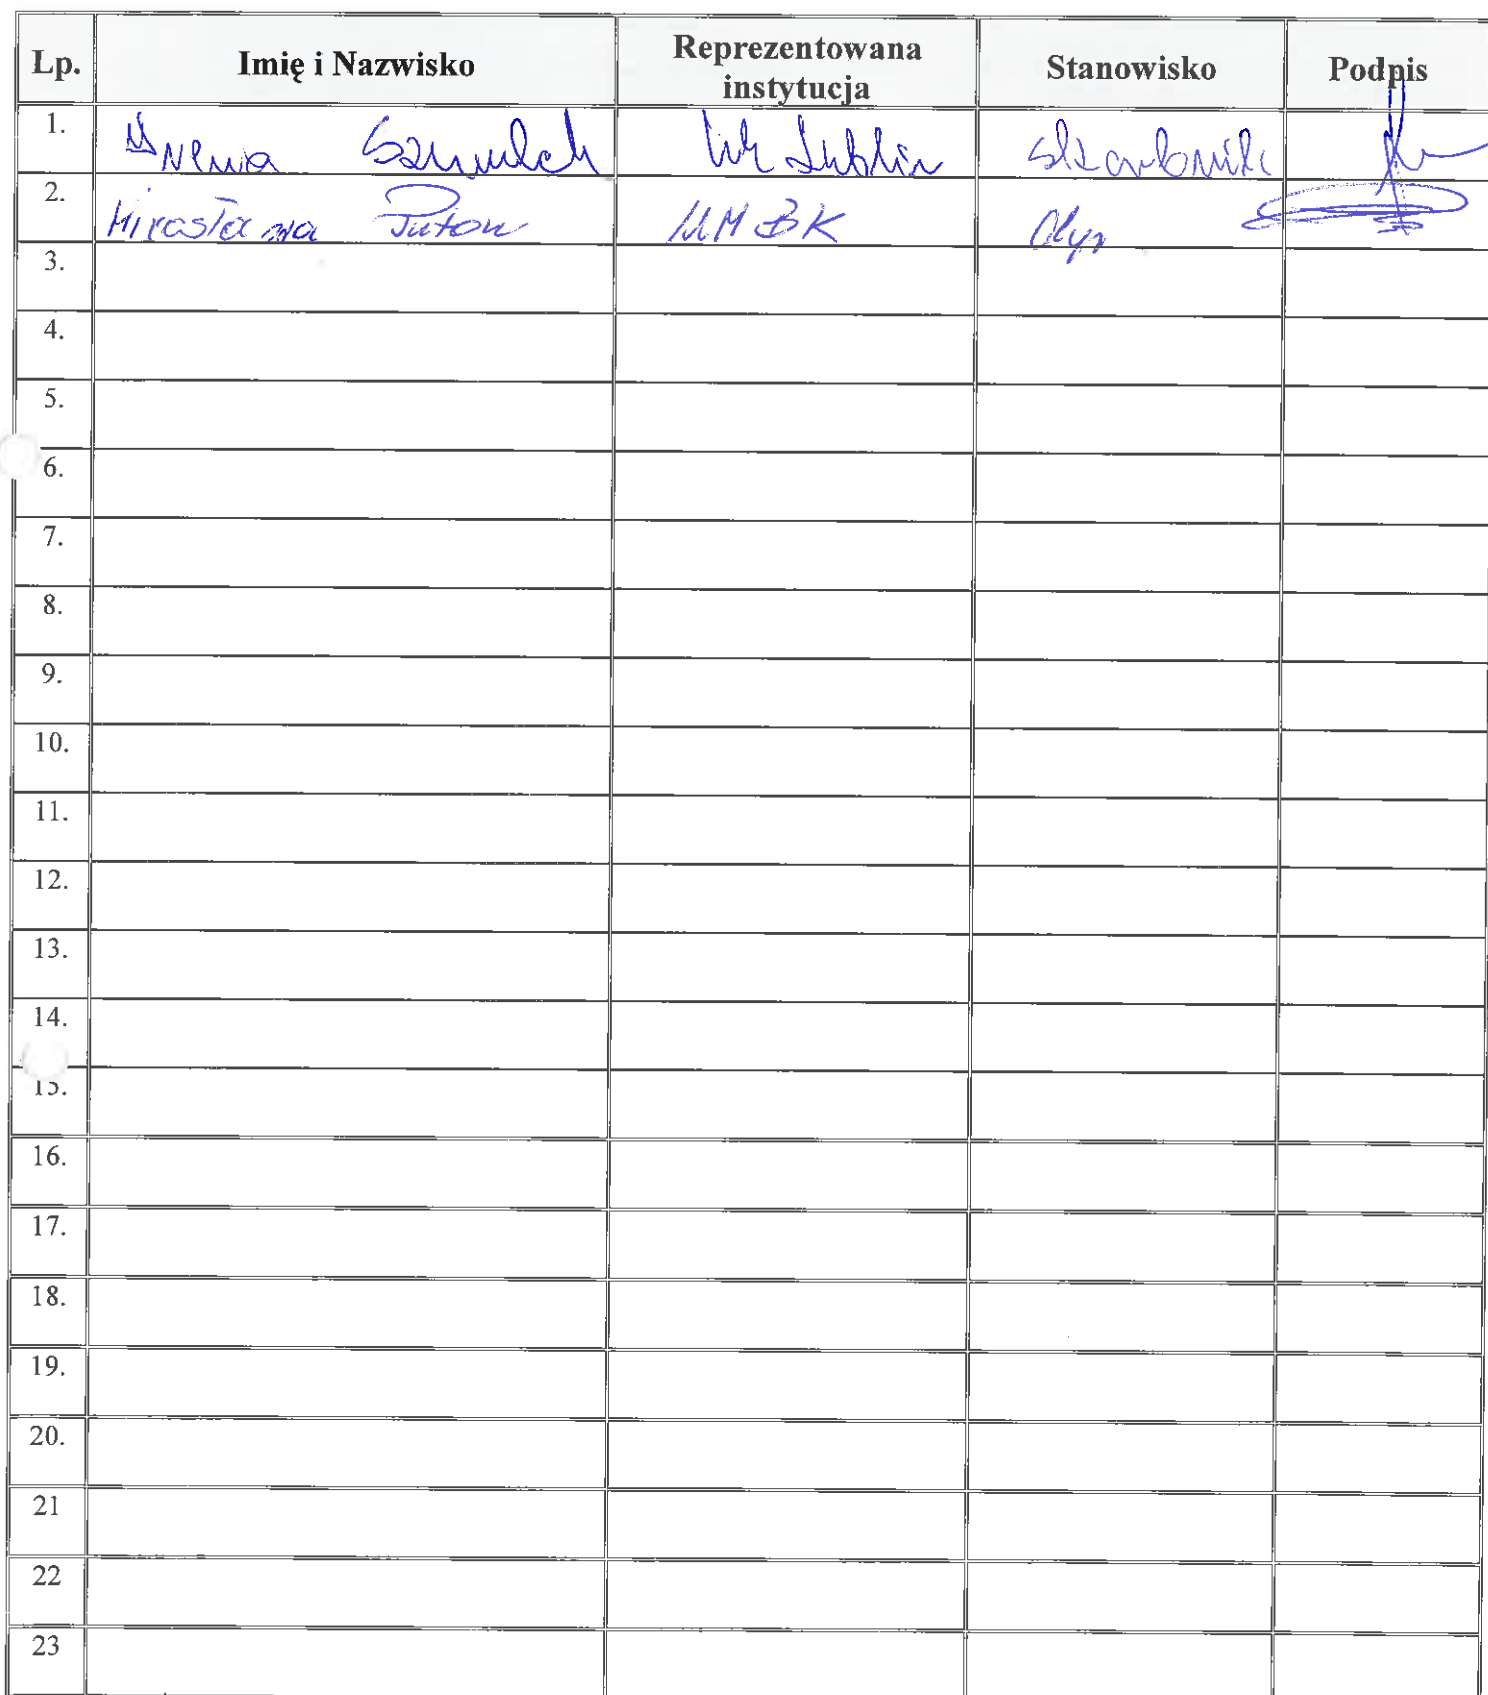 Lp. Imię i Nazwisko Reprezentowana instytucja Stanowisko Podpis
1. Lublin
2. Mirosława Putow MMBK
3.
4.
5.
6.
7.
8.
9.
10.
11.
12.
13.
14.
15.
16.
17.
18.
19.
20.
21
22
23